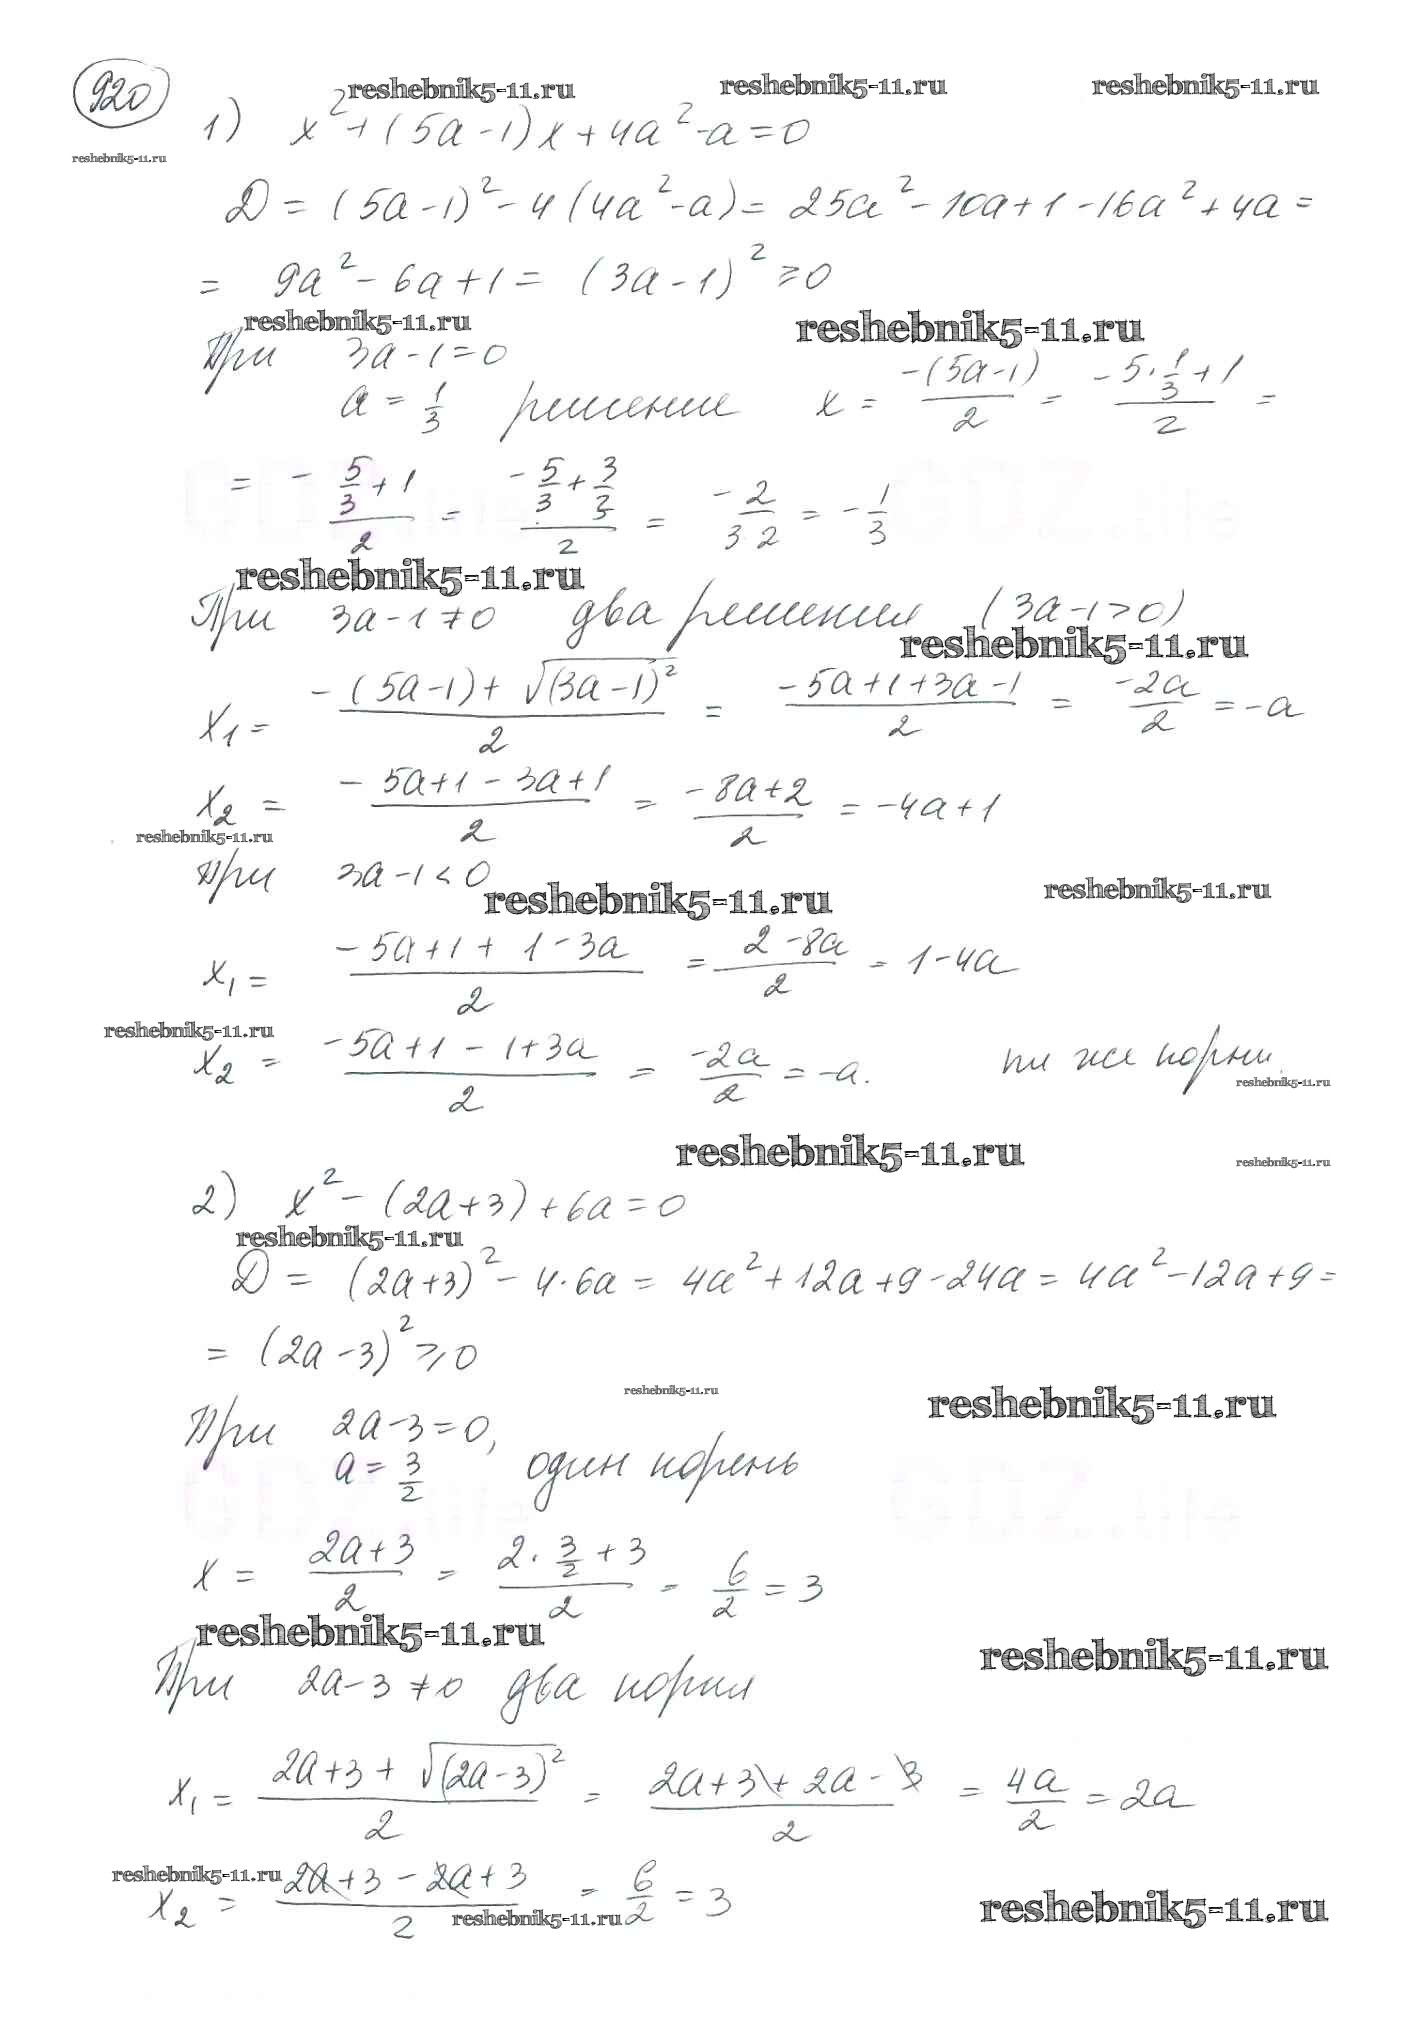 920
reshebnik5-11.ru reshebnik5-11.ru reshebnik5-11.ru
1) x² + (5a - 1)x + 4a² - a = 0
reshebnik5-11.ru
D = (5a - 1)² - 4(4a² - a) = 25a² - 10a + 1 - 16a² + 4a =
= 9a² - 6a + 1 = (3a - 1)² ≥ 0
reshebnik5-11.ru reshebnik5-11.ru
При 3a - 1 = 0
a = 1/3 решение x = -(5a - 1)/2 = (-5·1/3 + 1)/2 =
= (-5/3 + 1)/2 = (-5/3 + 3/3)/2 = -2/(3·2) = -1/3
reshebnik5-11.ru
При 3a - 1 ≠ 0 два решения (3a - 1 > 0)
reshebnik5-11.ru
x₁ = (-(5a - 1) + √(3a - 1)²)/2 = (-5a + 1 + 3a - 1)/2 = -2a/2 = -a
x₂ = (-5a + 1 - 3a + 1)/2 = (-8a + 2)/2 = -4a + 1
reshebnik5-11.ru
При 3a - 1 < 0
reshebnik5-11.ru reshebnik5-11.ru
x₁ = (-5a + 1 + 1 - 3a)/2 = (2 - 8a)/2 = 1 - 4a
reshebnik5-11.ru
x₂ = (-5a + 1 - 1 + 3a)/2 = -2a/2 = -a. те же корни.
reshebnik5-11.ru
reshebnik5-11.ru reshebnik5-11.ru
2) x² - (2a + 3) + 6a = 0
reshebnik5-11.ru
D = (2a + 3)² - 4·6a = 4a² + 12a + 9 - 24a = 4a² - 12a + 9 =
= (2a - 3)² ≥ 0
reshebnik5-11.ru reshebnik5-11.ru
При 2a - 3 = 0,
a = 3/2 один корень
x = (2a + 3)/2 = (2·3/2 + 3)/2 = 6/2 = 3
reshebnik5-11.ru reshebnik5-11.ru
При 2a - 3 ≠ 0 два корня
x₁ = (2a + 3 + √(2a - 3)²)/2 = (2a + 3 + 2a - 3)/2 = 4a/2 = 2a
reshebnik5-11.ru
x₂ = (2a + 3 - 2a + 3)/2 = 6/2 = 3
reshebnik5-11.ru reshebnik5-11.ru